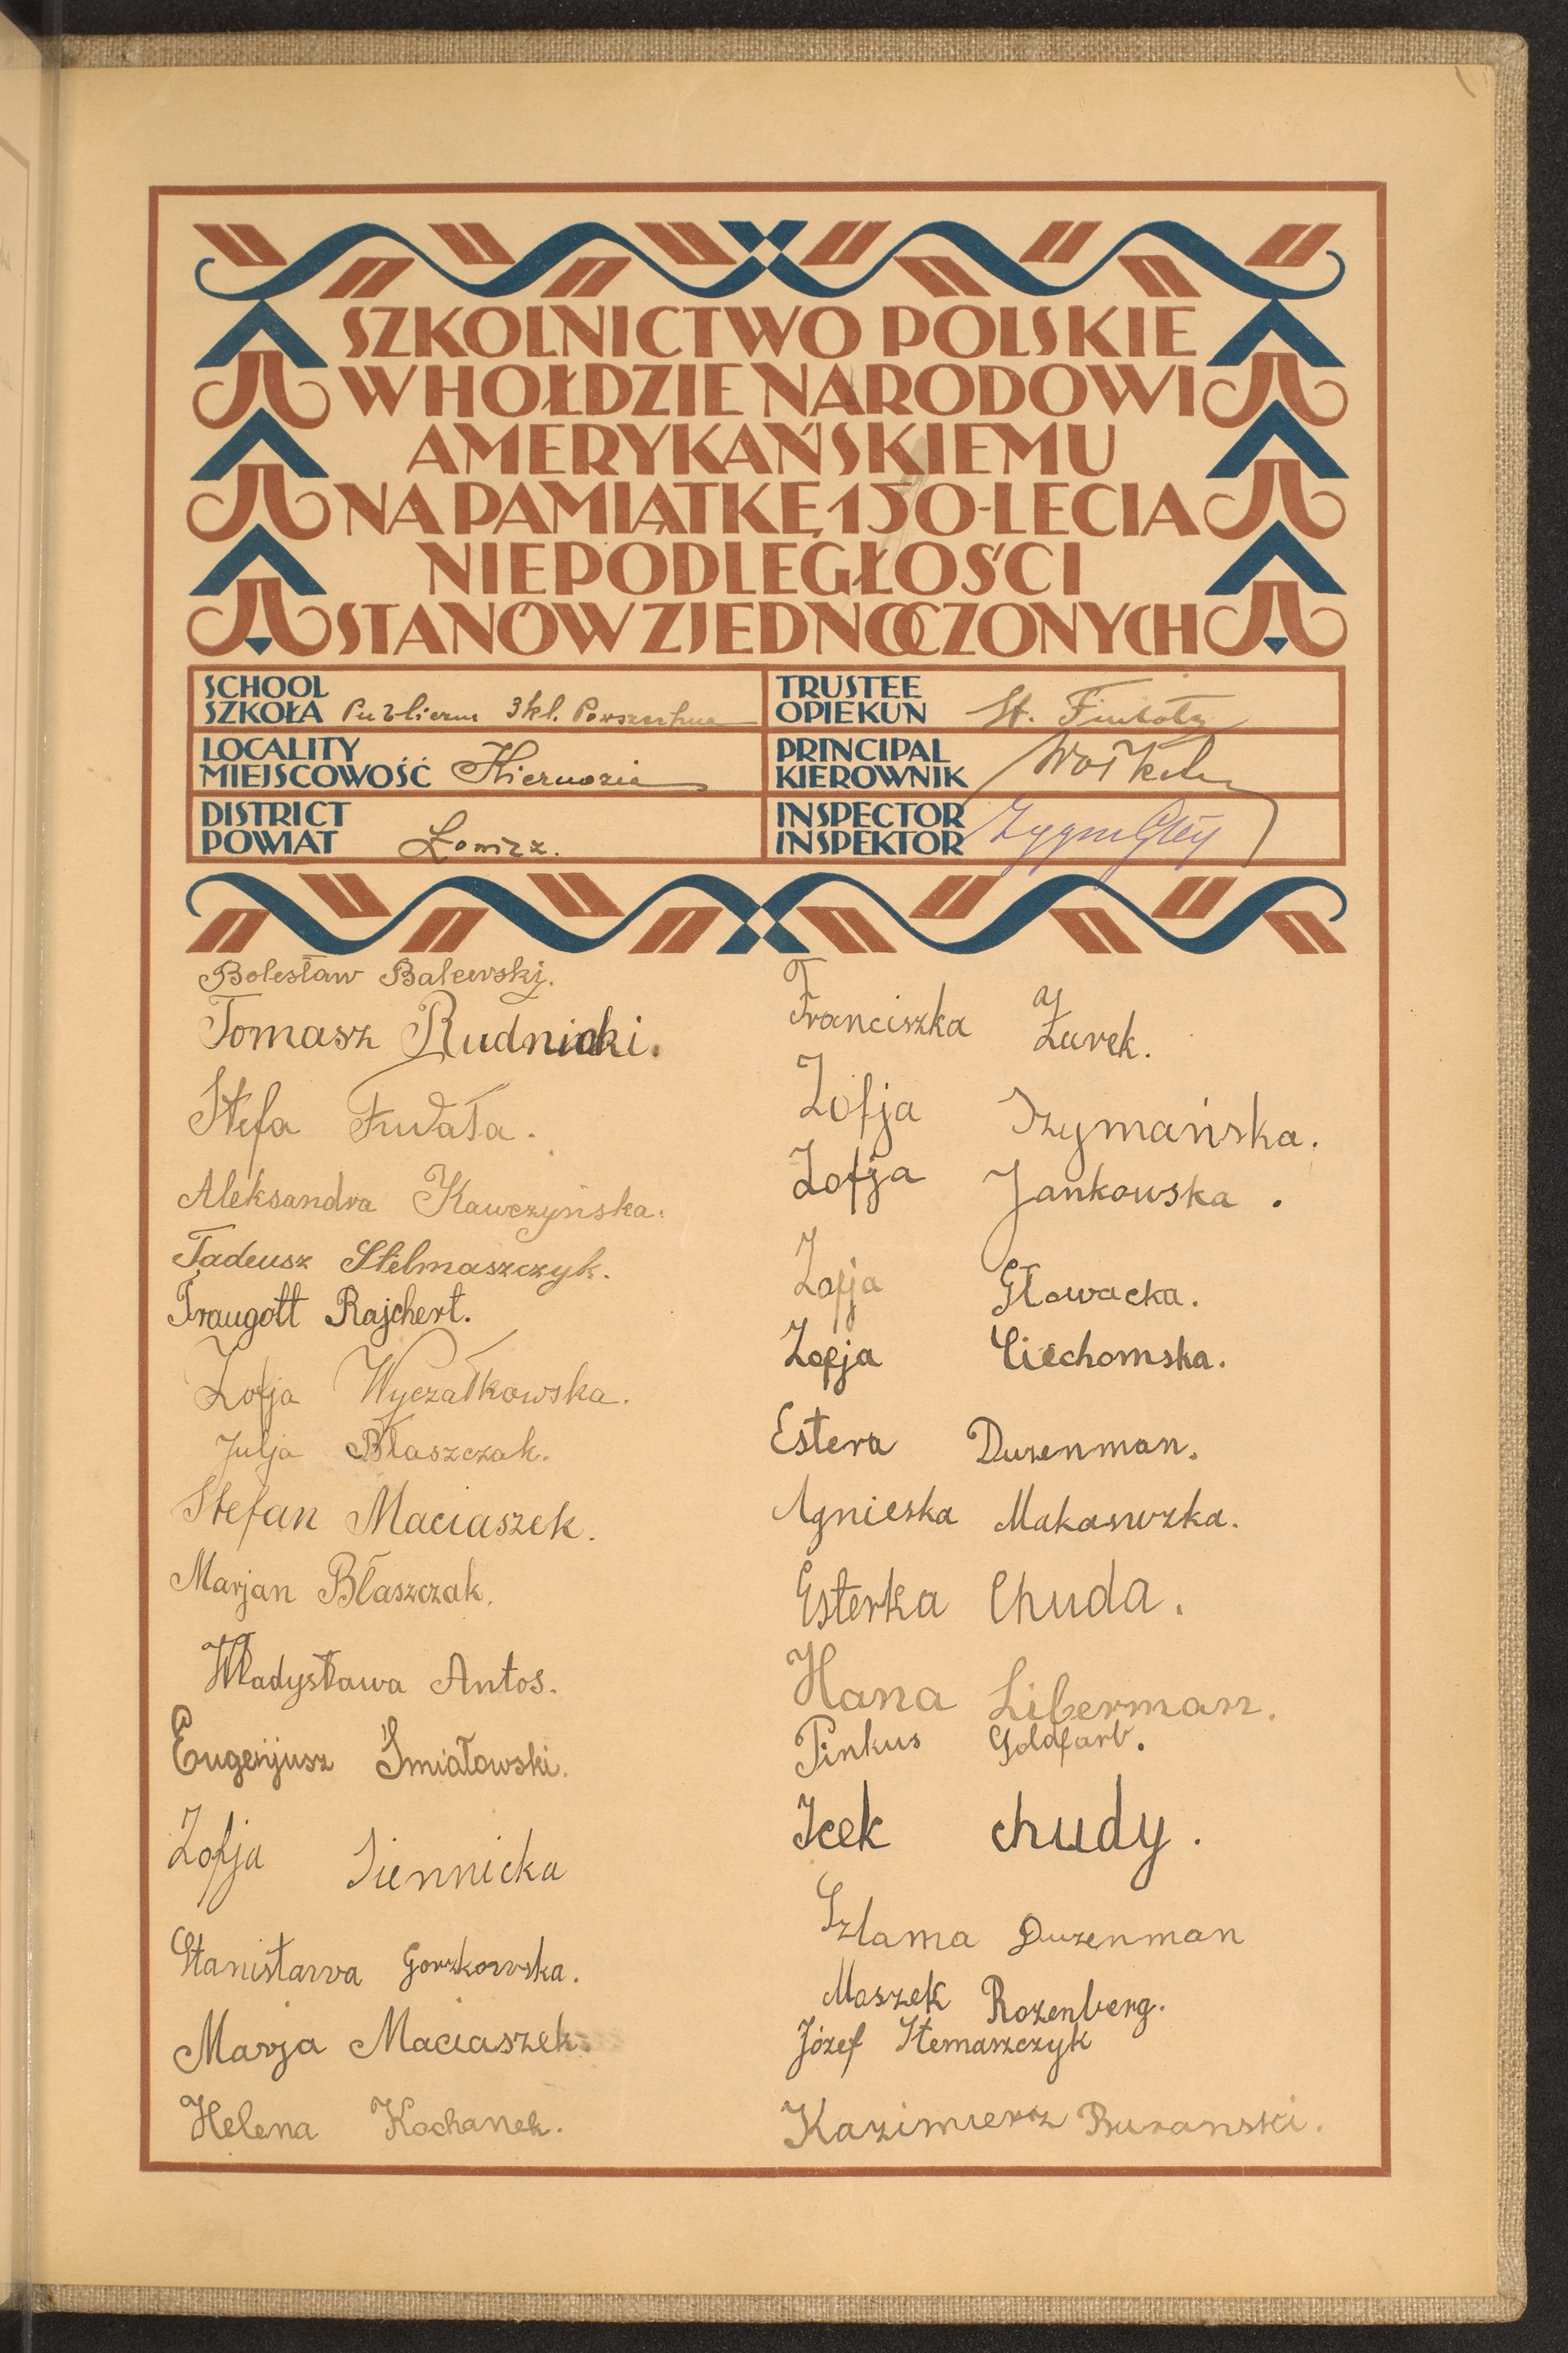 SZKOLNICTWO POLSKIE
W HOŁDZIE NARODOWI
AMERYKAŃSKIEMU
NA PAMIĄTKĘ 150-LECIA
NIEPODLEGŁOŚCI
STANÓW ZJEDNOCZONYCH
SCHOOL
SZKOŁA Publiczna 3 kl. Powszechna
TRUSTEE
OPIEKUN St.
LOCALITY
MIEJSCOWOŚĆ Kiernozia
PRINCIPAL
KIEROWNIK
DISTRICT
POWIAT Łowicz.
INSPECTOR
INSPEKTOR
Bolesław Balewski.
Tomasz Rudnicki.
Stefa
Aleksandra Kawczyńska.
Tadeusz Stelmaszczyk.
Traugott Rajchert.
Zofja Wyczałkowska.
Julja Błaszczak.
Stefan Maciaszek.
Marjan Błaszczak.
Władysława Antos.
Eugenjusz Śmiałowski.
Zofja Siennicka
Stanisława Gorzkowska.
Marja Maciaszek.
Helena Kochanek.
Franciszka Żurek.
Zofja Szymańska.
Zofja Jankowska.
Zofja Głowacka.
Zofja Ciechomska.
Estera Duzenman.
Agnieska
Esterka Chuda.
Hana Liberman.
Pinkus Goldfarb.
Icek chudy.
Szlama Duzenman
Moszek Rozenberg.
Józef Stemaszczyk
Kazimierz Buranski.